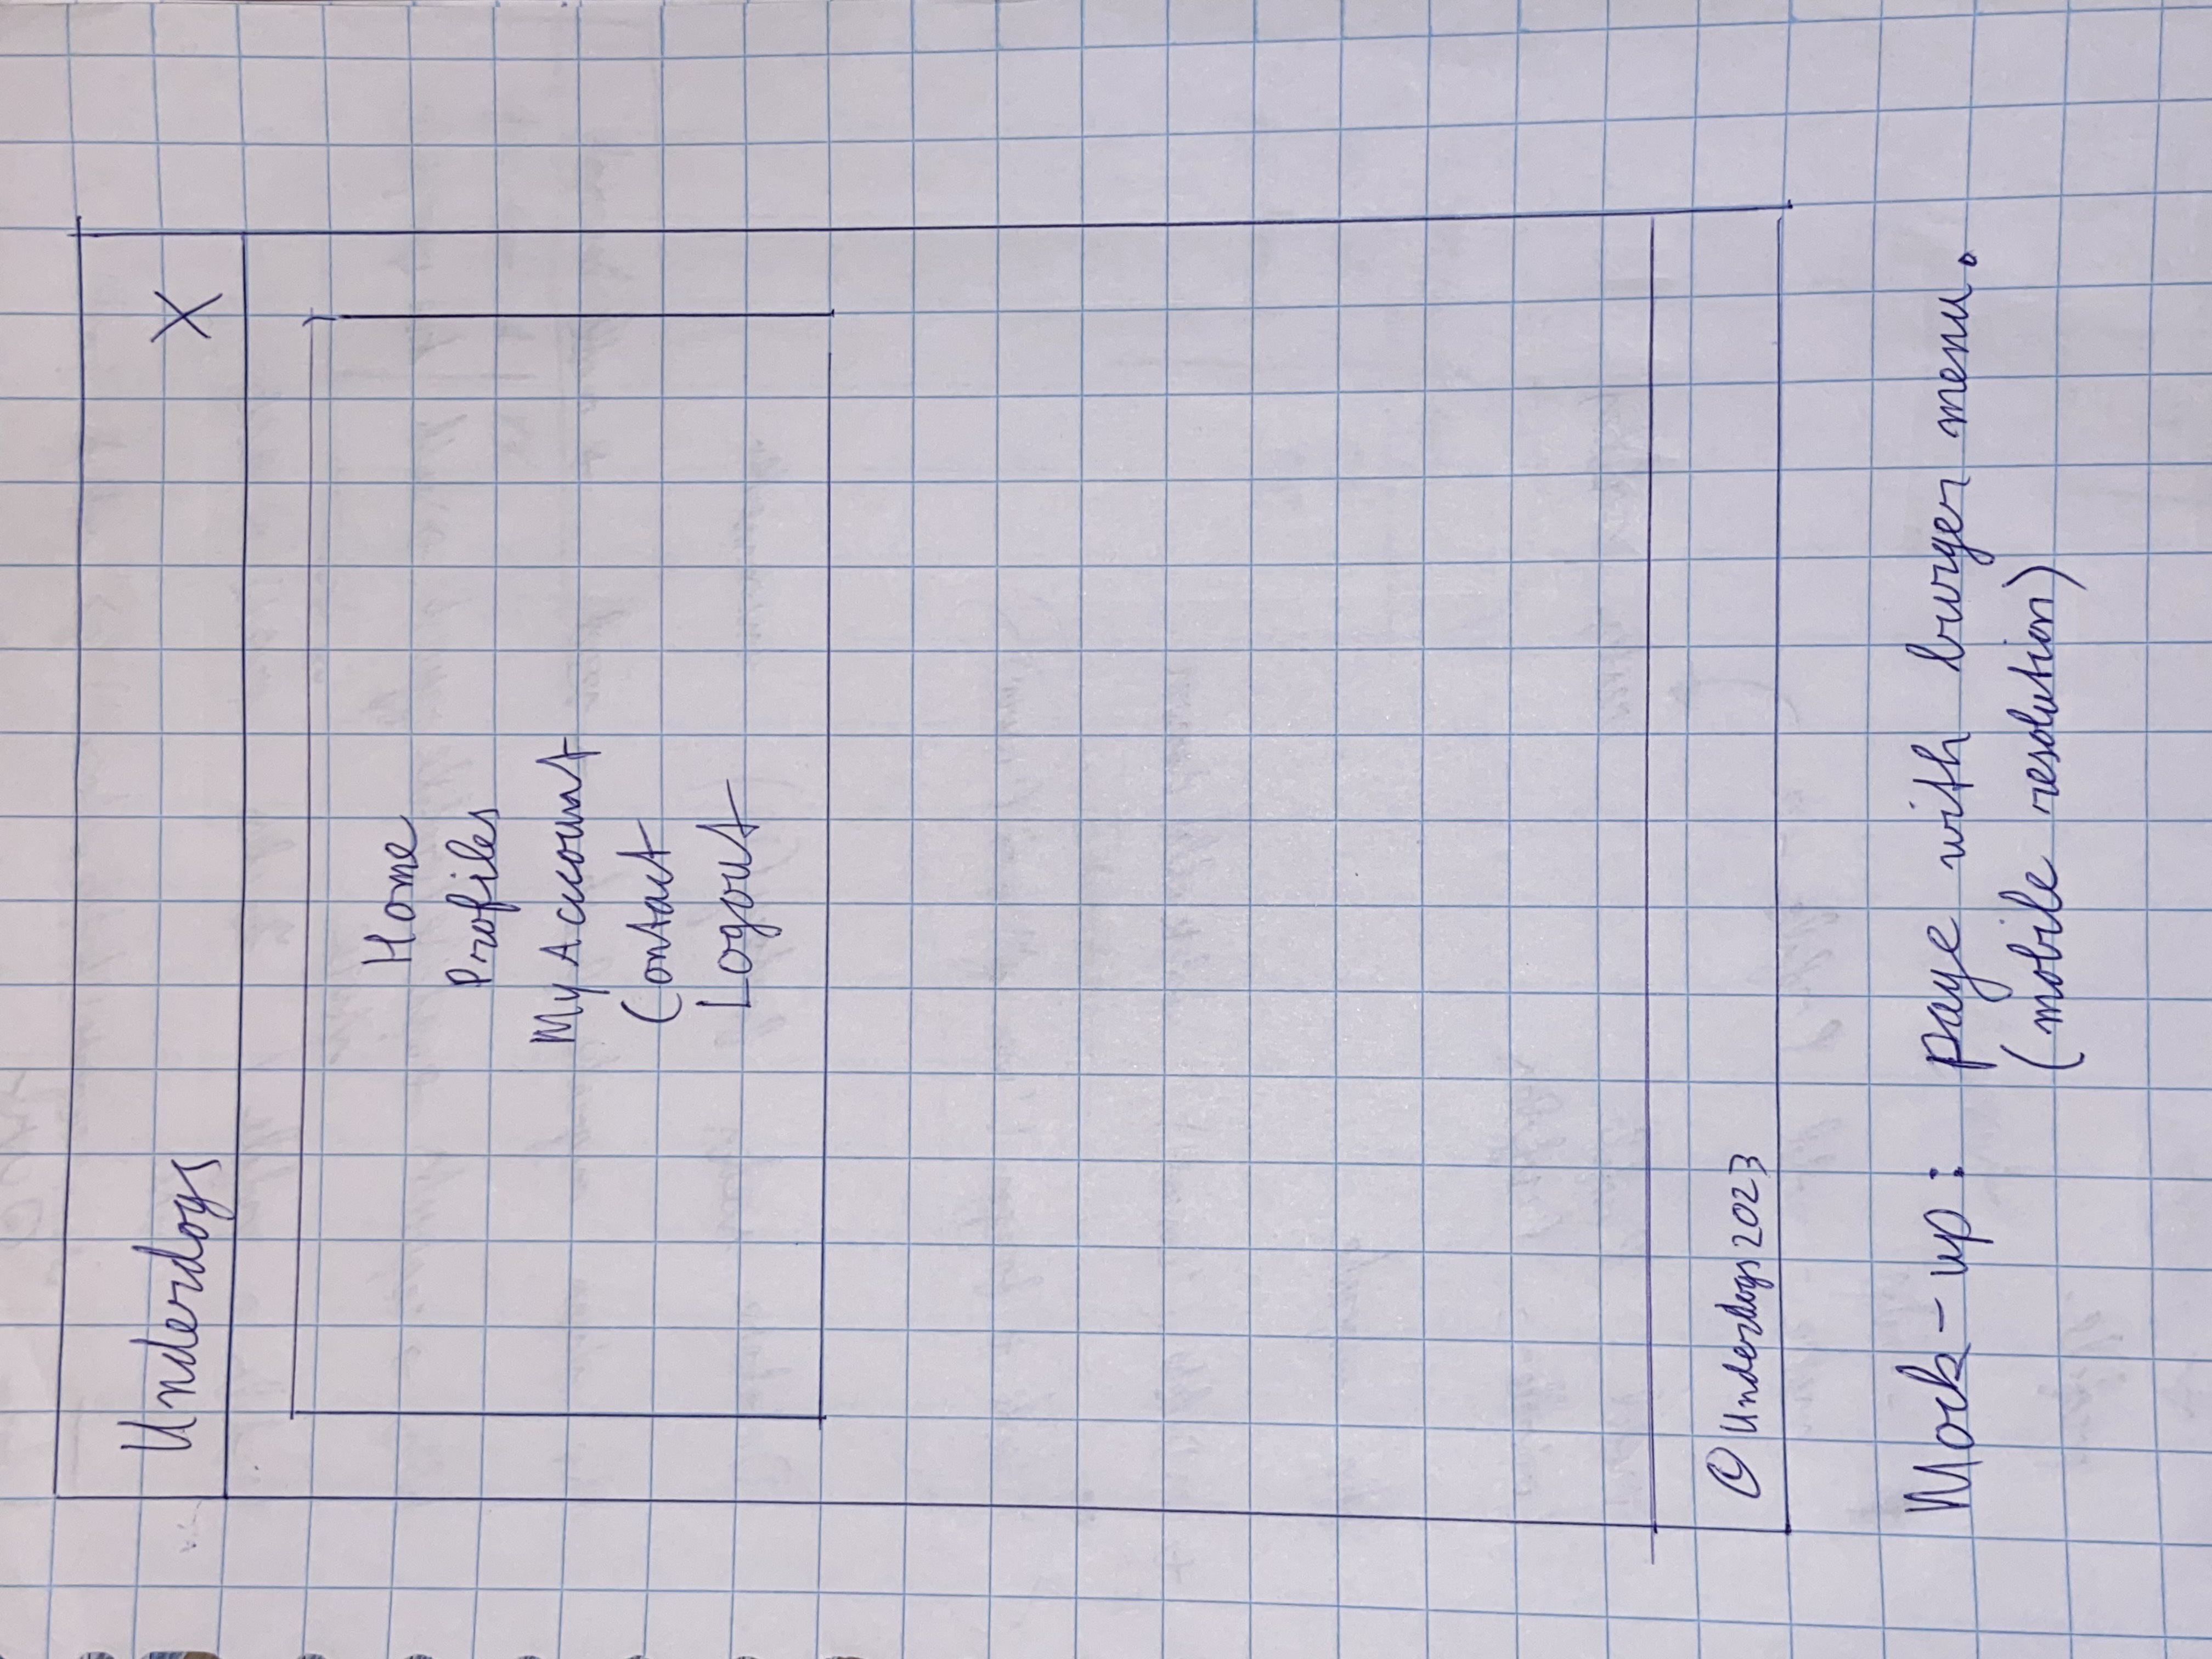 Underdogs X
Home
Profiles
My Account
Contact
Logout
© Underdogs 2023
Mock-up: page with burger menu.
(mobile resolution)